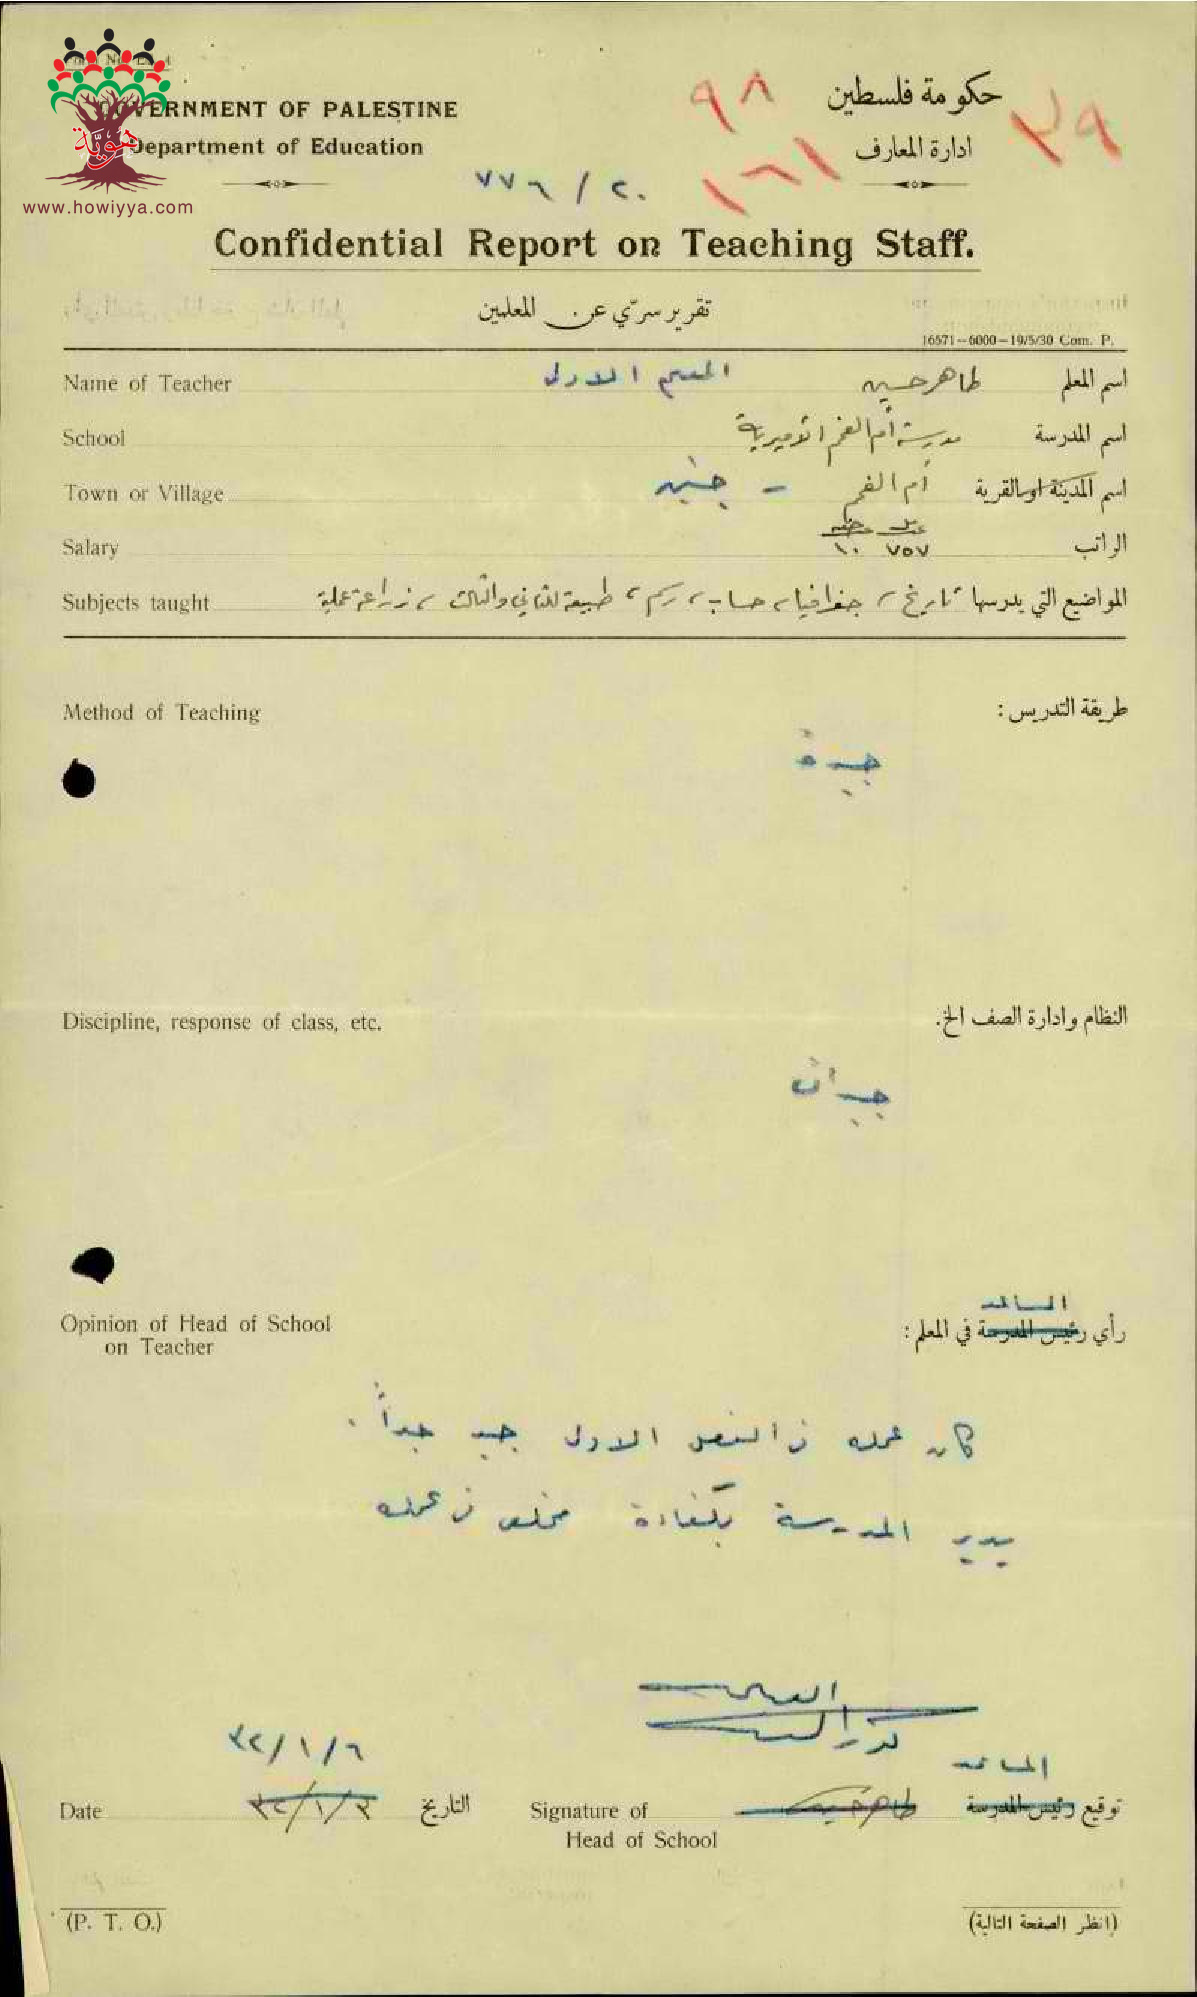 GOVERNMENT OF PALESTINE
Department of Education
حكومة فلسطين
ادارة المعارف
هويّة
www.howiyya.com
٩٨
١٦١
٣٩
٧٧٦ / ٢٠
Confidential Report on Teaching Staff.
تقرير سرّي عن المعلمين
16571—6000—19/5/30 Com. P.
Name of Teacher طاهر حسين المعلم الاول اسم المعلم
School مدرسة أم الفحم الاميرية اسم المدرسة
Town or Village أم الفحم - جنين اسم المدينة او القرية
Salary ٧٥٧ ١٠ الراتب
Subjects taught تاريخ، جغرافيا، حساب، رسم، طبيعة للثاني والثالث، زراعة عملية المواضيع التي يدرسها
Method of Teaching طريقة التدريس :
جيدة
Discipline, response of class, etc. النظام وادارة الصف الخ.
جيدان
المساعد
Opinion of Head of School رأي رئيس المدرسة في المعلم :
on Teacher
كان عمله في الفصل الاول جيد جداً.
يدير المدرسة بكفاءة مخلص في عمله
٣٢/١/٦
المساعد
Date ٣٢/١/٣ التاريخ Signature of طاهر حسين توقيع رئيس المدرسة
Head of School
(P. T. O.) (انظر الصفحة التالية)